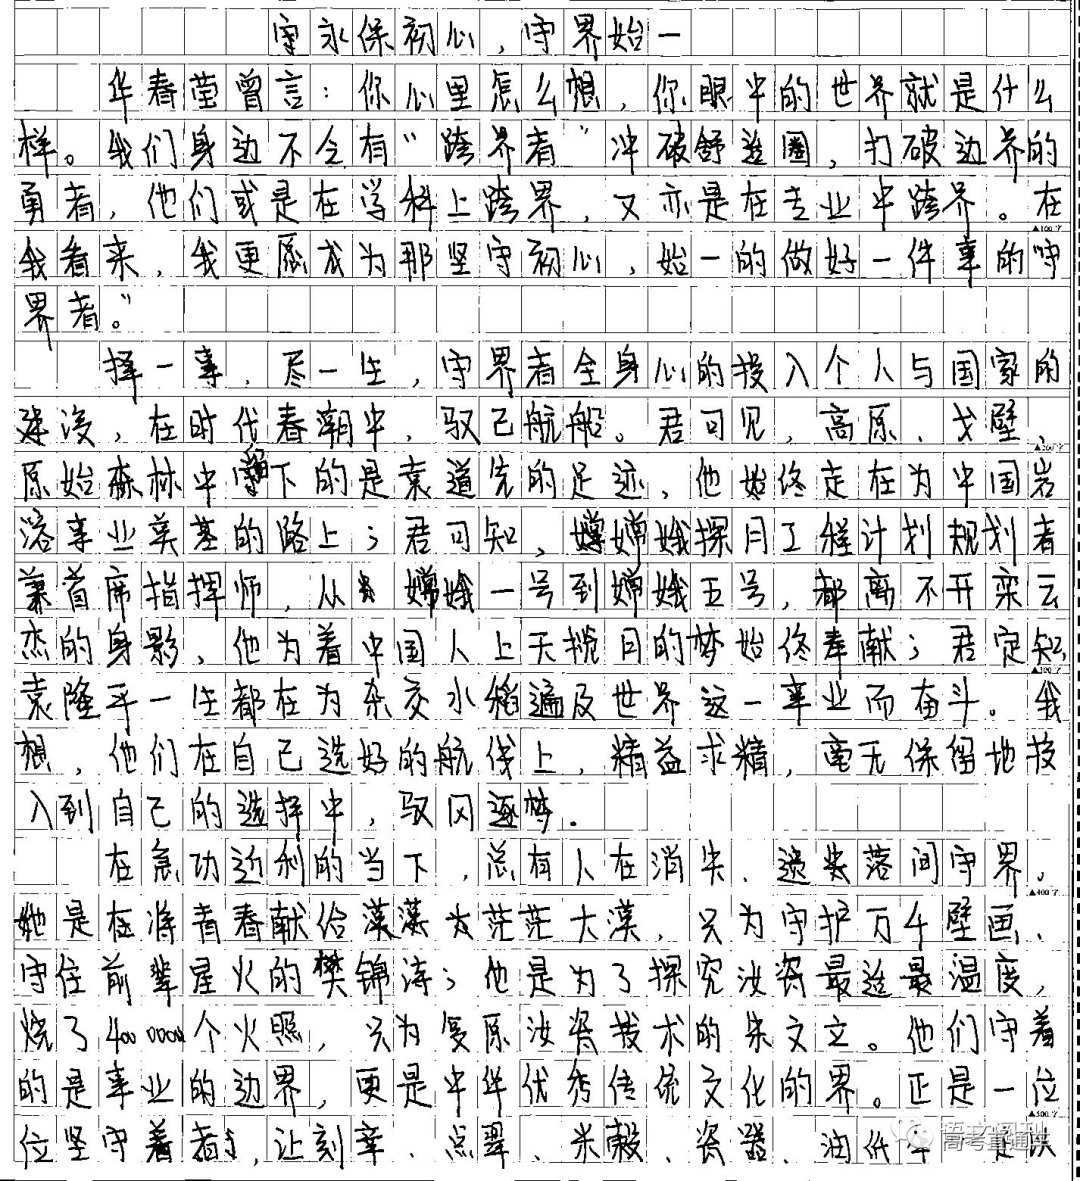 守永保初心，守界始一
华春莹曾言：你心里怎么想，你眼中的世界就是什么
样。我们身边不乏有“跨界者”冲破舒适圈，打破边界的
勇者，他们或是在学科上跨界，又亦是在专业中跨界。在
我看来，我更愿成为那坚守初心，始一的做好一件事的守
界者。”
择一事，尽一生，守界者全身心的投入个人与国家的
建设，在时代春潮中，驭己航船。君可见，高原、戈壁、
原始森林中留下的是袁道先的足迹，他始终走在为中国岩
溶事业奠基的路上；君可知，嫦娥探月工程计划规划者
兼首席指挥师，从嫦娥一号到嫦娥五号，都离不开栾云
杰的身影，他为着中国人上天揽月的梦始终奉献；君定知，
袁隆平一生都在为杂交水稻遍及世界这一事业而奋斗。我
想，他们在自己选好的航线上，精益求精，毫无保留地投
入到自己的选择中，驭风逐梦。
在急功近利的当下，总有人在消失、遗失落间守界。
她是在将青春献给茫茫大漠，只为守护万千壁画、
守住前辈星火的樊锦涛；他是为了探究汝瓷最适最温度，
烧了400000个火照，只为复原汝瓷技术的朱文立。他们守着
的是事业的边界，更是中华优秀传统文化的界。正是一位
位坚守着者，让刻章、点翠、米殽、瓷器、油纸
▲100字
▲200字
▲300字
▲400字
▲500字
高考直通车